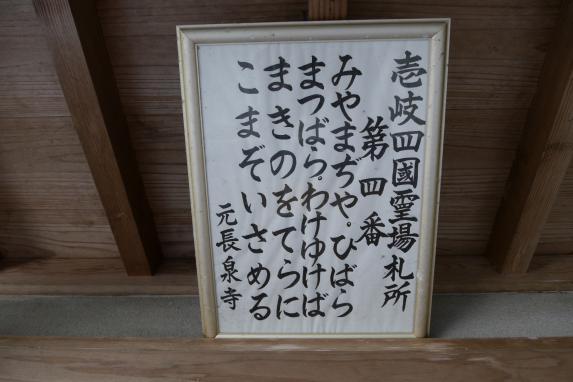 壱岐四國霊場札所
第四番
みやまぢや。ひばら
まつばら。わけゆけば
まきのをてらに
こまぞいさめる
元長泉寺